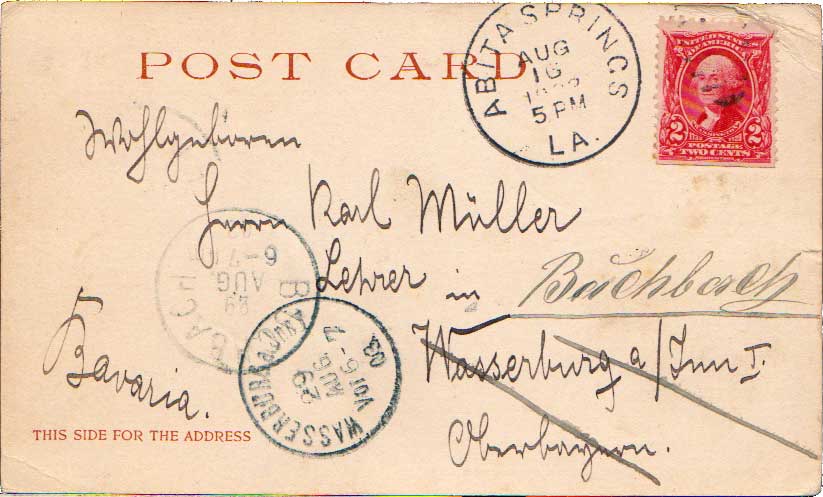 POST CARD
ABITA SPRINGS
AUG
16
5 PM
LA.
UNITED STATES
OF AMERICA
WASHINGTON
2 2
POSTAGE
TWO CENTS
Wohlgeboren
Herrn Karl Müller
Lehrer in Buchbach
Wasserburg a/Inn I.
Oberbayern.
Bavaria.
6-7
AUG
29
BACH
WASSERBURG
29
AUG
Vor 6-7
03.
THIS SIDE FOR THE ADDRESS